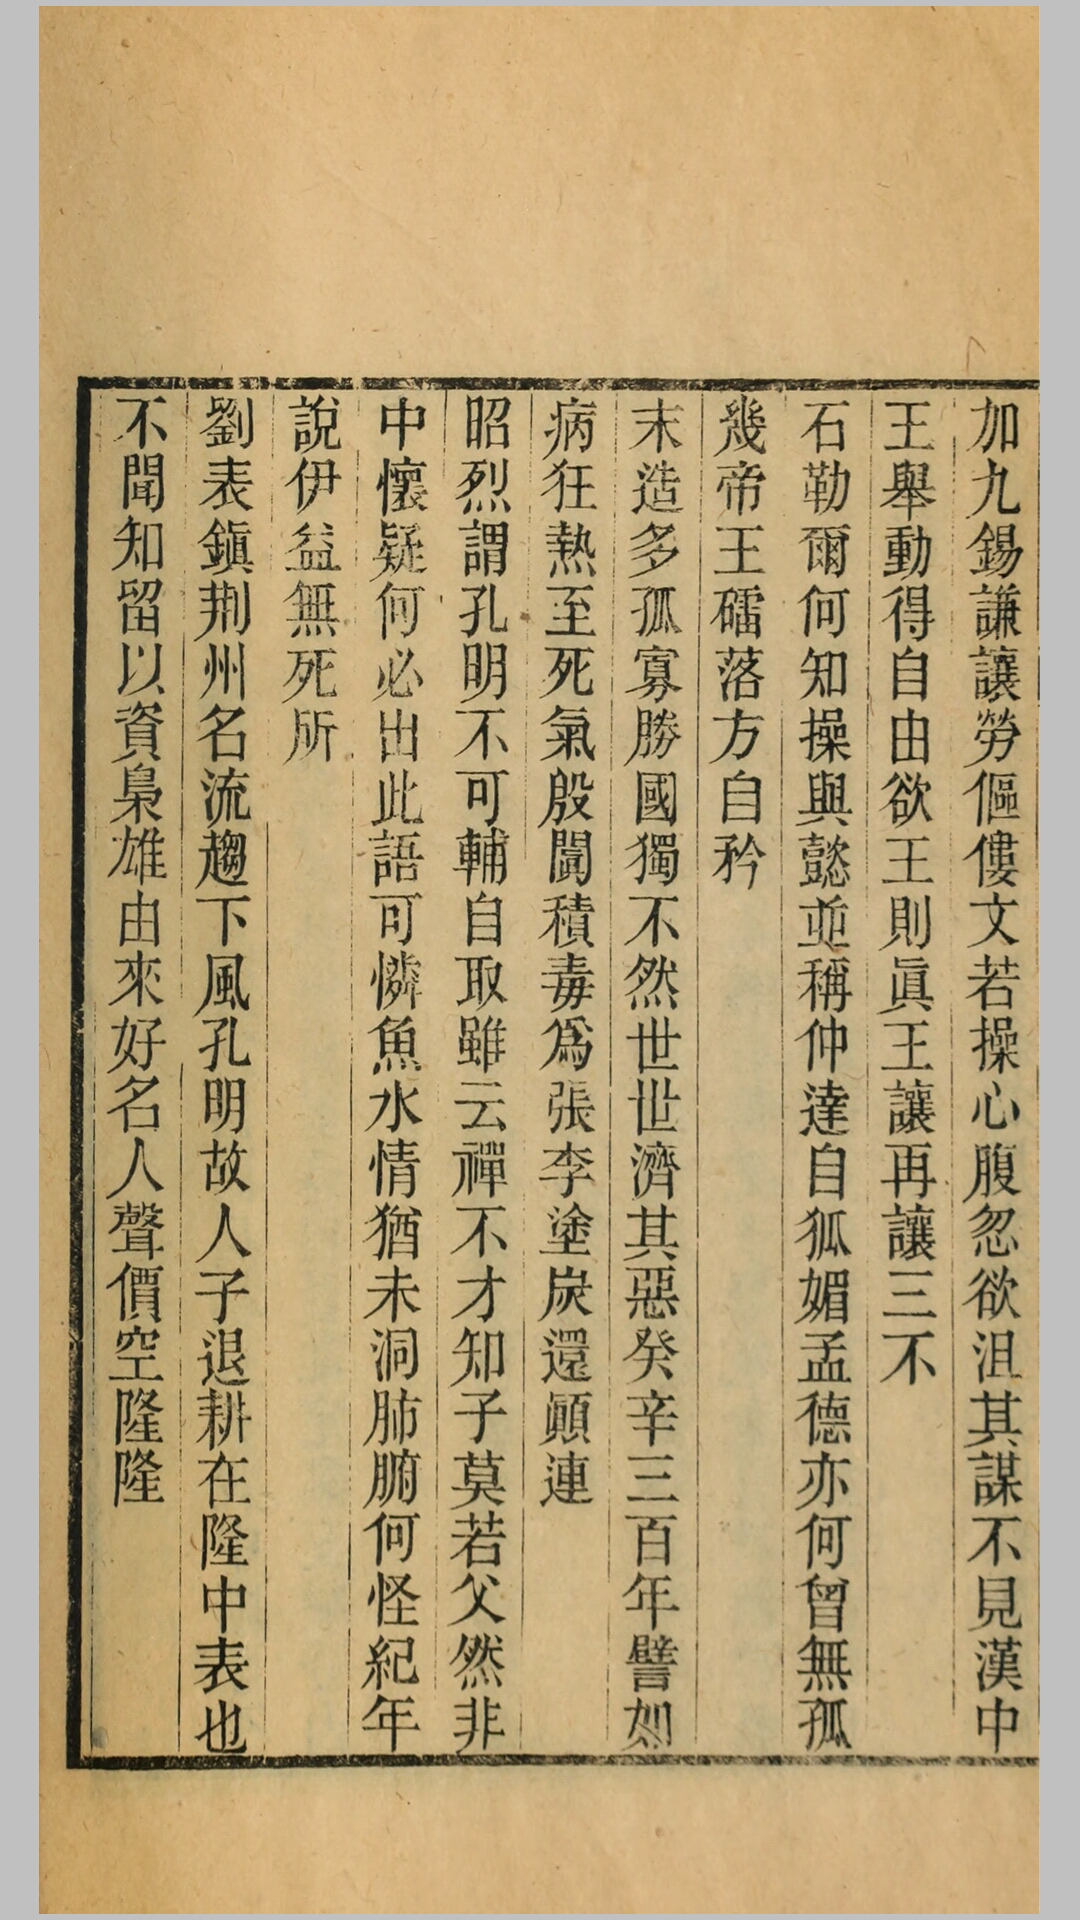 加九錫謙讓勞傴僂文若操心腹忽欲沮其謀不見漢中
王舉動得自由欲王則眞王讓再讓三不
石勒爾何知操與懿並稱仲達自狐媚孟德亦何曾無孤
幾帝王礌落方自矜
末造多孤寡勝國獨不然世世濟其惡癸辛三百年譬如
病狂熱至死氣殷闐積毒爲張李塗炭還顚連
昭烈謂孔明不可輔自取雖云禪不才知子莫若父然非
中懷疑何必出此語可憐魚水情猶未洞肺腑何怪紀年
說伊益無死所
劉表鎭荆州名流趨下風孔明故人子退耕在隆中表也
不聞知留以資梟雄由來好名人聲價空隆隆